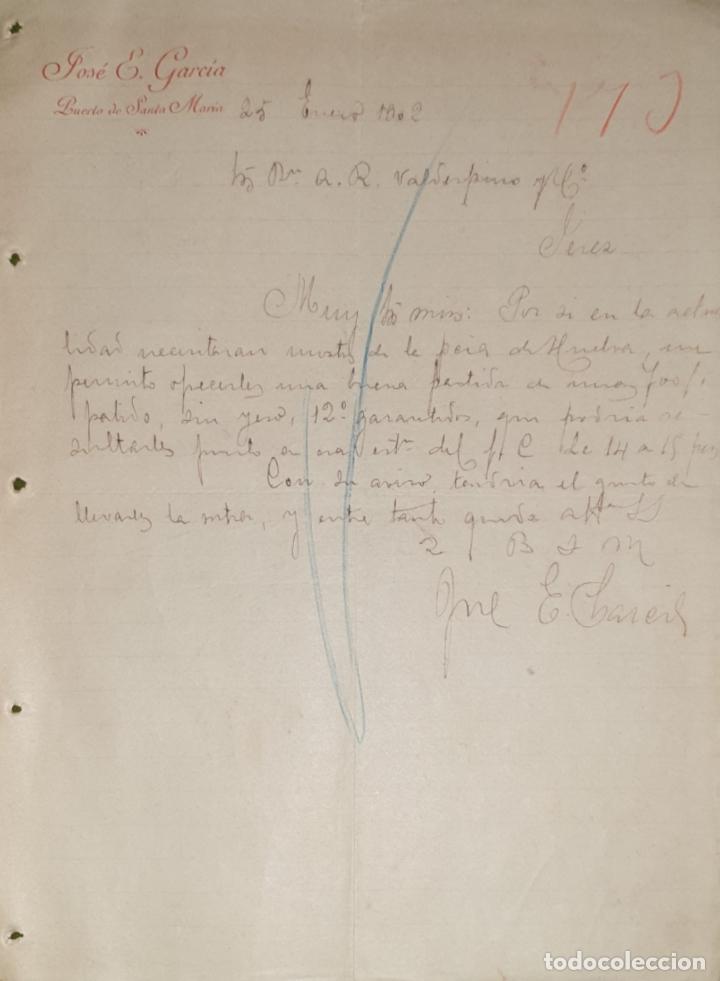 José E. García
Puerto de Santa María 25 Enero 1902
A. R. Valdespino y Cº
Jerez
Muy Sres mios: Por si en la actua
lidad necesitaran mostos de la pcia de Huelva, me
permito ofrecerles una buena partida de unas 700
sin yeso, 12º garantidos, que podria re-
sultarles puesto en esa estn del f. C de 14 a 15
Con su aviso, tendria el gusto de
llevarles la mtra, y entre tanto queda SS
Q B S M
José E. García
todocoleccion.net